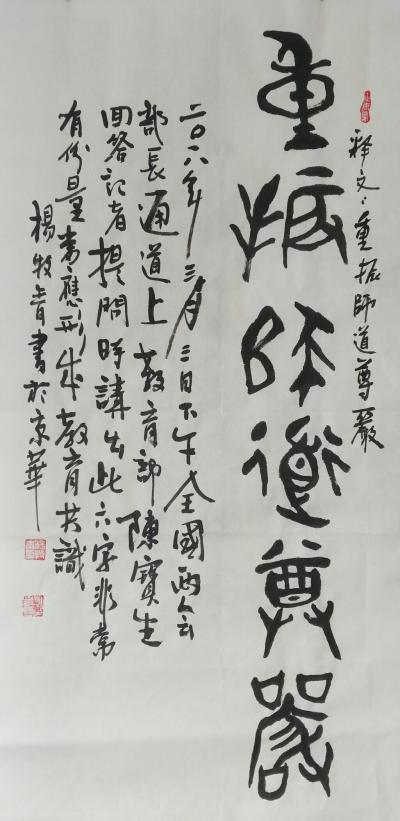 释文：重振師道尊嚴
重振師道尊嚴
二〇一八年三月三日下午全國两会
部長通道上教育部陳寶生
回答記者提問時講出此六字非常
有份量 當應形成教育共識
楊牧青書於京華